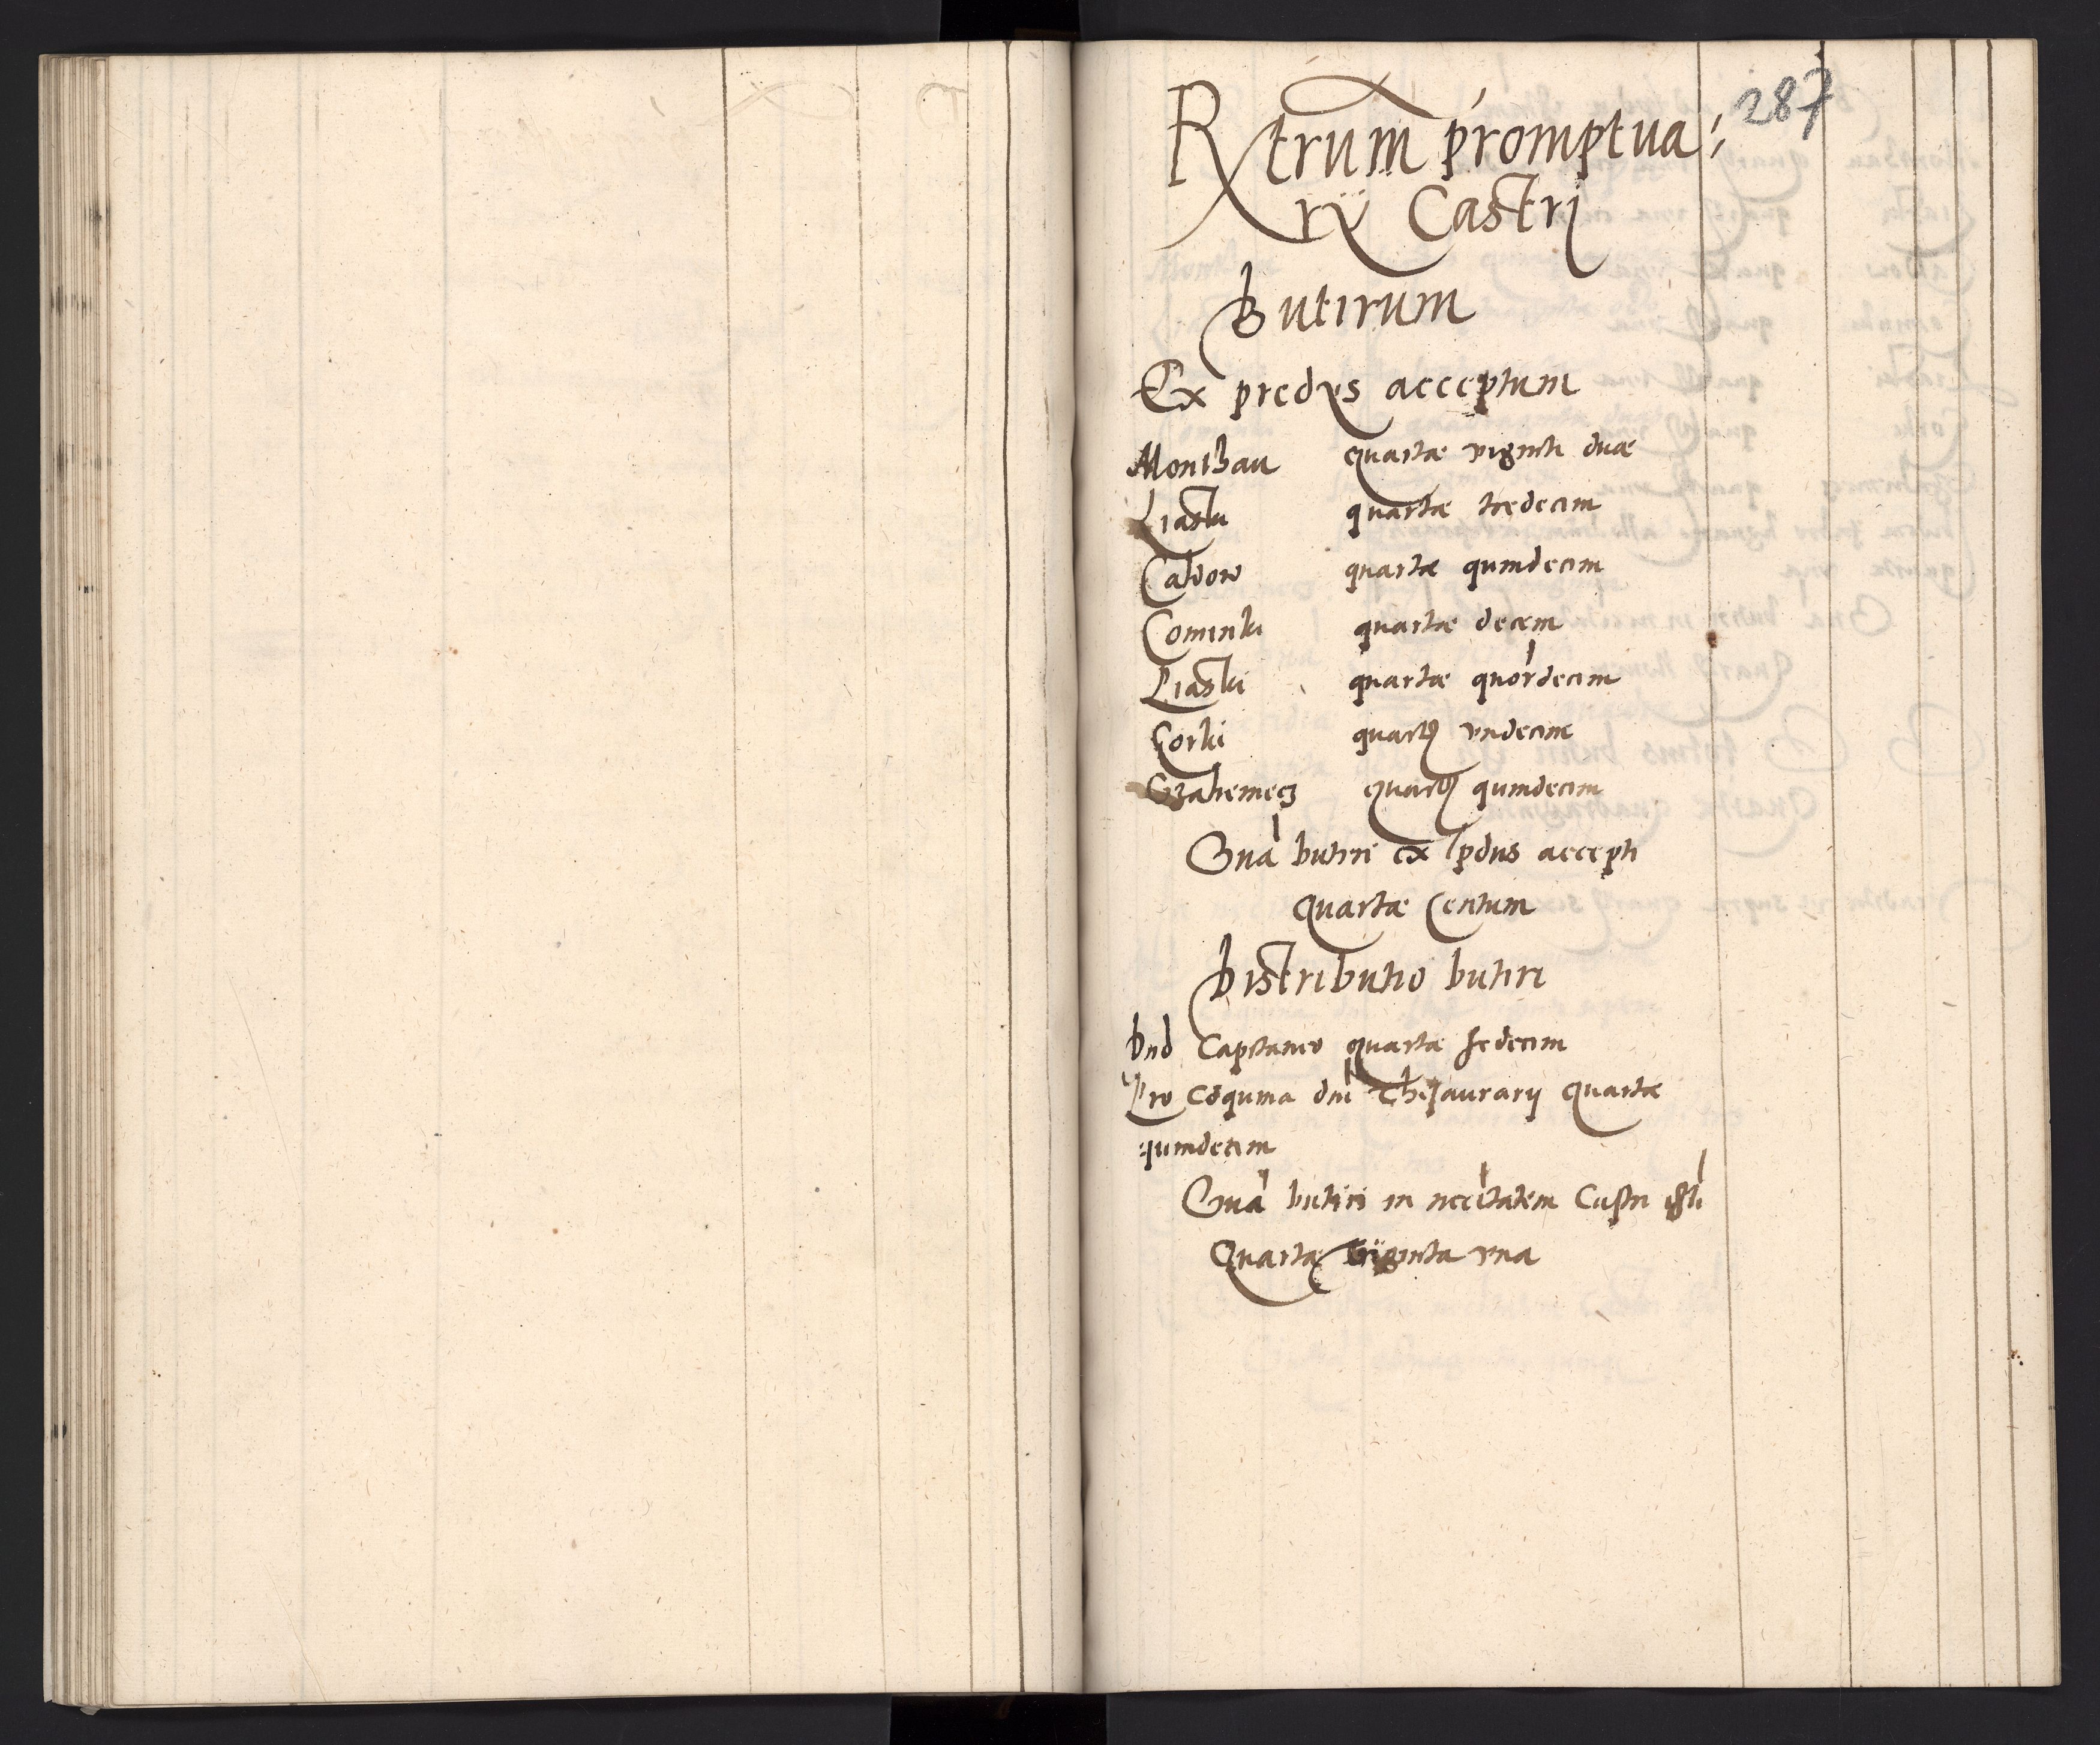 287
Rtrum promptua:
rÿ Castrj
Butirum
Ex predÿs acceptum
Monthau quartæ viginti duæ
Liasky quartæ tredecim
Caldow quartæ quindecim
Cominki quartæ decem
Liaski quartæ quordecim
Gorki quartę vndecim
Grahemecz quartę quindecim
Sua butiri ex pdiis accepti
quartæ Centum
Distributio butiri
Dnd Capitaneo quarta sedecim
Pro Coquina dni Thesaurarij quartæ
quindecim
Sua butiri in nccitatem Castri
Quartæ triginta vna